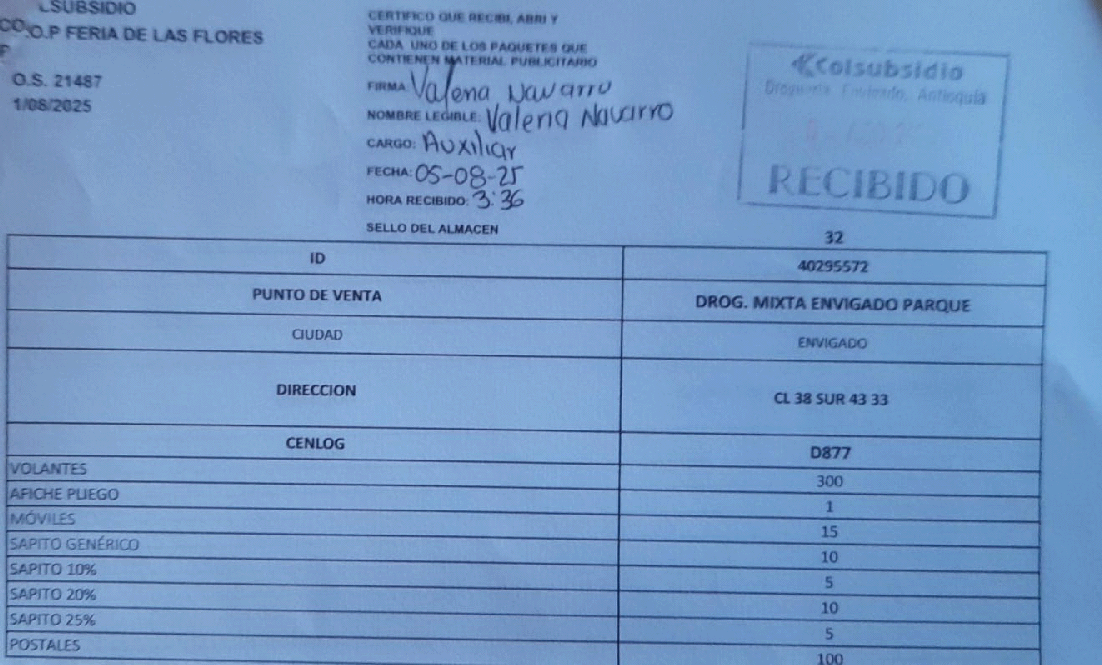 LSUBSIDIO
CO.O.P FERIA DE LAS FLORES
P
O.S. 21487
1/08/2025
CERTIFICO QUE RECIBI, ABRI Y
VERIFIQUE
CADA UNO DE LOS PAQUETES QUE
CONTIENEN MATERIAL PUBLICITARIO
FIRMA: Valeria Navarro
NOMBRE LEGIBLE: Valeria Navarro
CARGO: Auxiliar
FECHA: 05-08-25
HORA RECIBIDO: 3:36
SELLO DEL ALMACEN
Colsubsidio
Droguería Envigado, Antioquia
RECIBIDO
32
ID 40295572
PUNTO DE VENTA DROG. MIXTA ENVIGADO PARQUE
CIUDAD ENVIGADO
DIRECCION CL 38 SUR 43 33
CENLOG D877
VOLANTES 300
AFICHE PLIEGO 1
MÓVILES 15
SAPITO GENÉRICO 10
SAPITO 10% 5
SAPITO 20% 10
SAPITO 25% 5
POSTALES 100